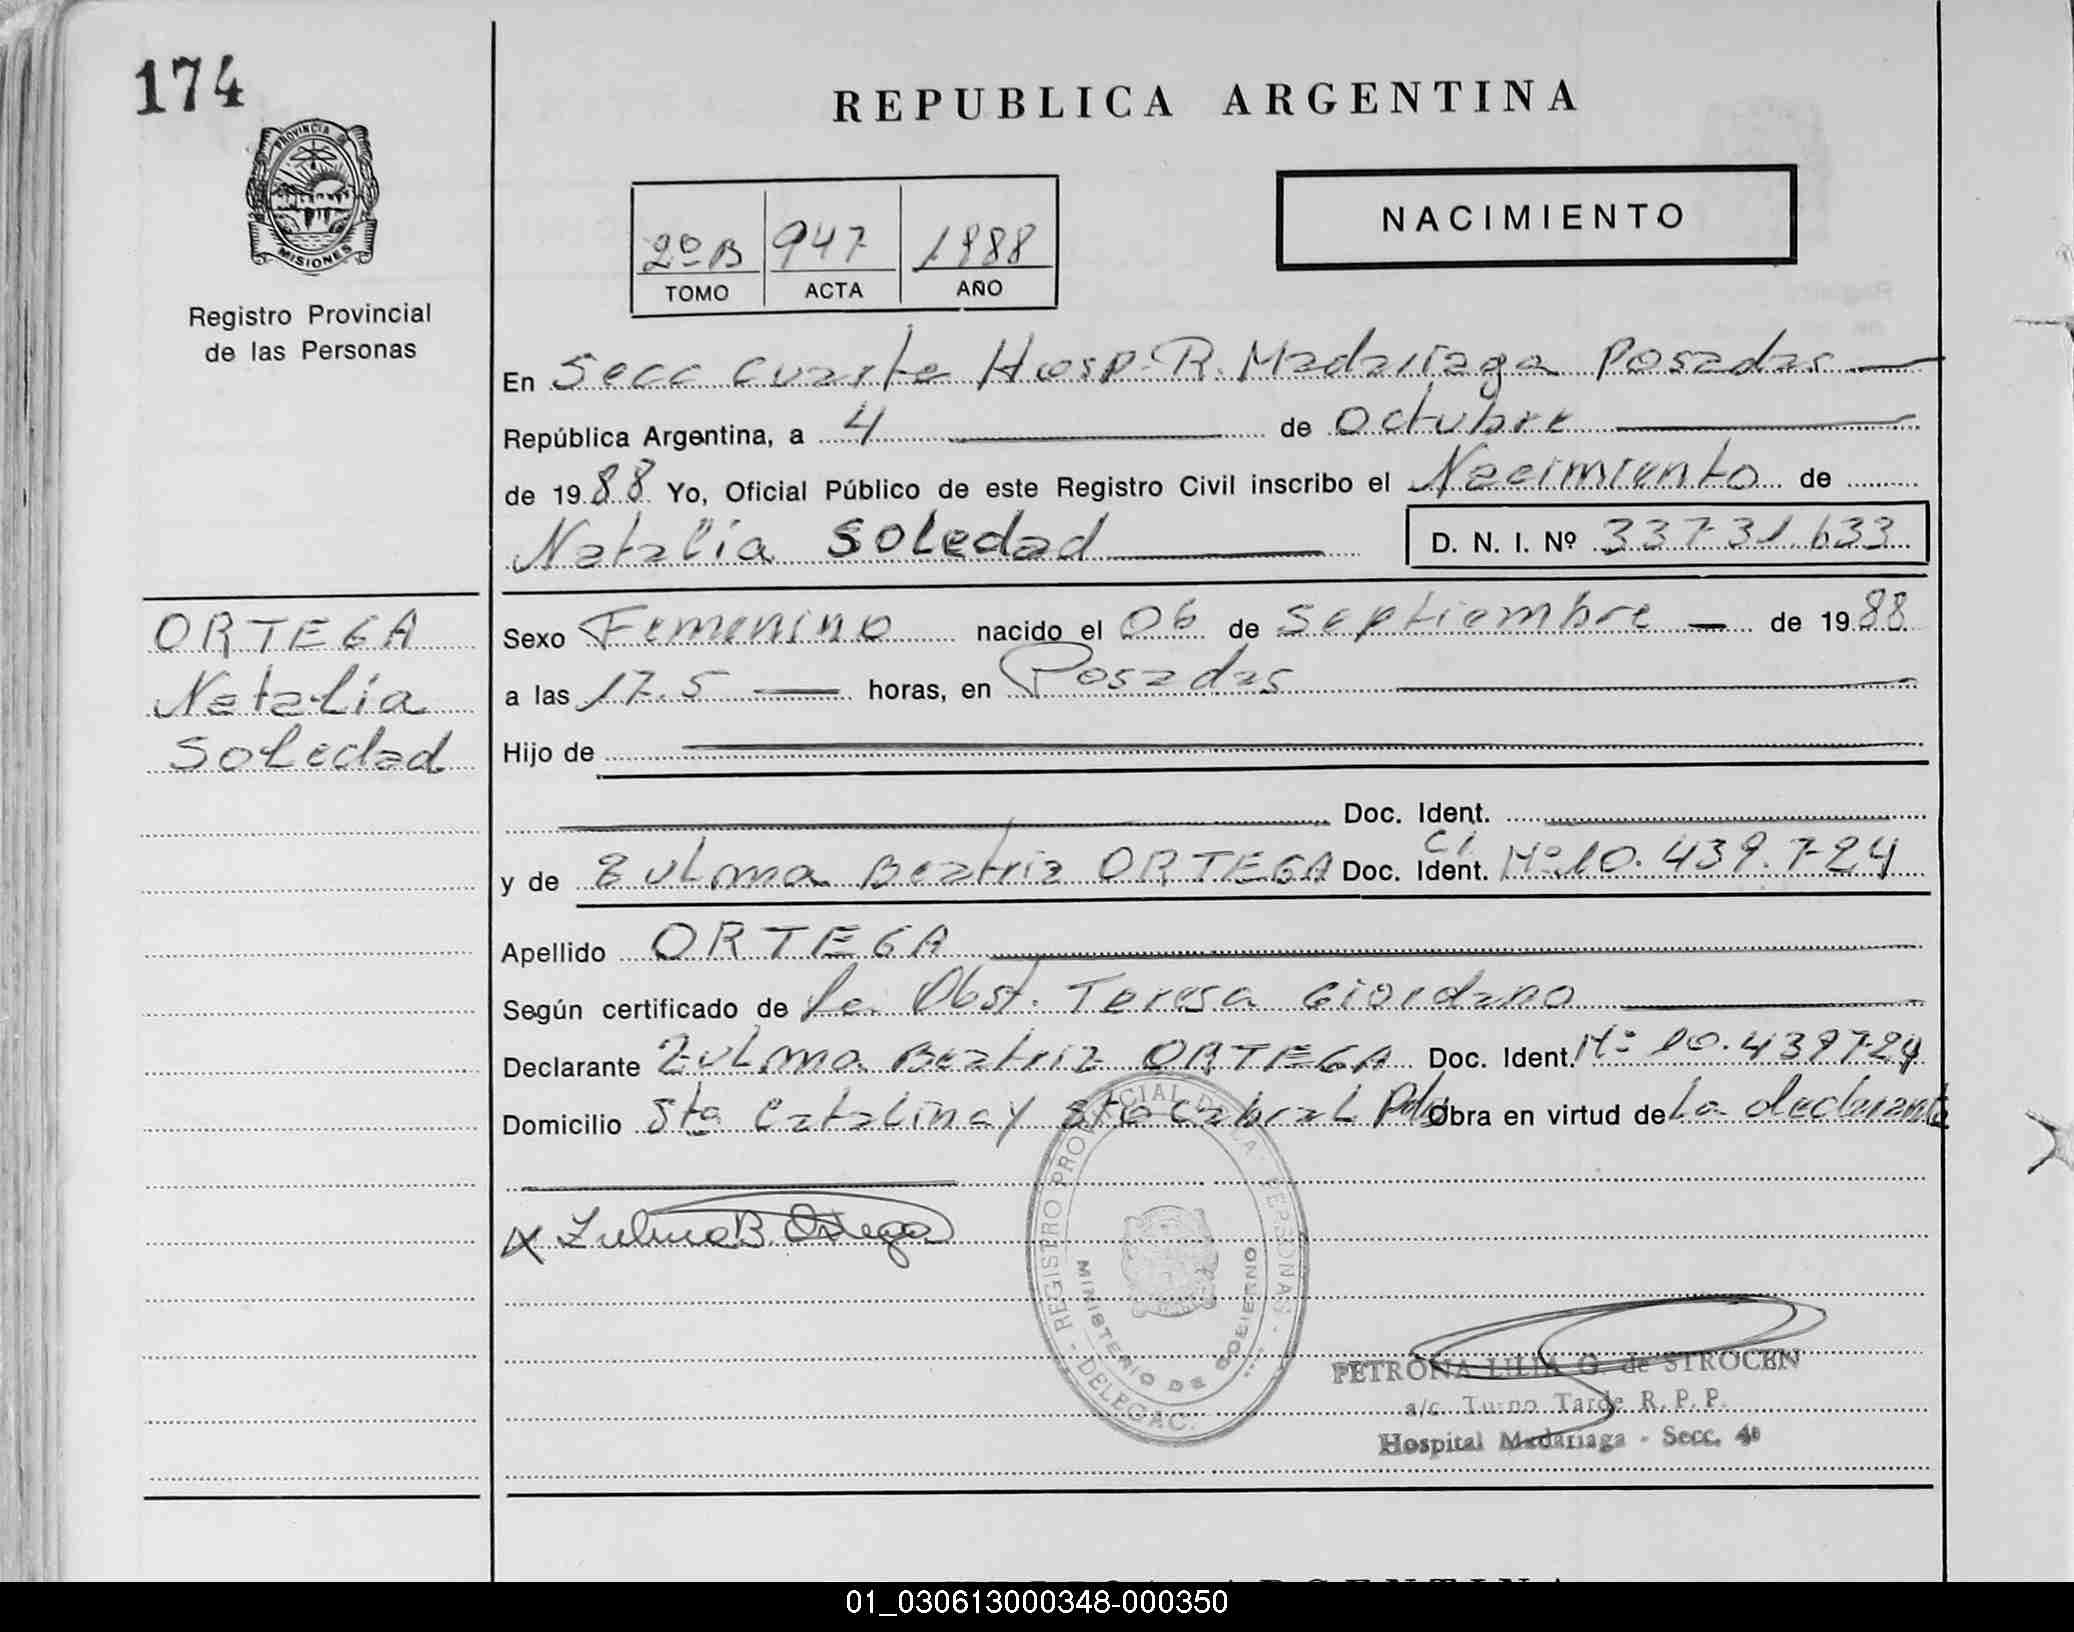 174
PROVINCIA DE
MISIONES
Registro Provincial
de las Personas
REPUBLICA ARGENTINA
NACIMIENTO
2º B 947 1988
TOMO ACTA AÑO
En Secc Cuarta Hosp. R. Madariaga Posadas
República Argentina, a 4 de Octubre
de 1988 Yo, Oficial Público de este Registro Civil inscribo el Nacimiento de
Natalia Soledad D. N. I. Nº 33731.633
ORTEGA
Natalia
Soledad
Sexo Femenino nacido el 06 de Septiembre de 1988
a las 17.5 horas, en Posadas
Hijo de
Doc. Ident.
y de Zulma Beatriz ORTEGA Doc. Ident. C.I. Nº 10.439.724
Apellido ORTEGA
Según certificado de la Obst. Teresa Giordano
Declarante Zulma Beatriz ORTEGA Doc. Ident. Nº 10.439724
Domicilio Sta Catalina y Sto Cabral Pdas Obra en virtud de La declarante
x Zulma B. Ortega
REGISTRO PROVINCIAL DE LAS PERSONAS
MINISTERIO DE GOBIERNO
DELEGAC.
PETRONA LILIA G. de STROCEN
a/c. Turno Tarde R. P. P.
Hospital Madariaga - Secc. 4ª
ARGENTINA
01_030613000348-000350